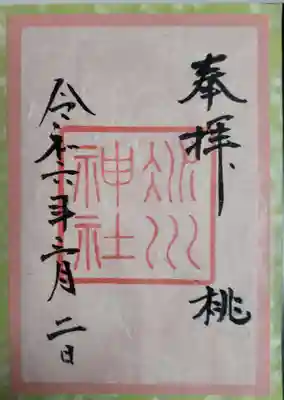 奉拝 桃
氷川
神社
令和六年三月二日